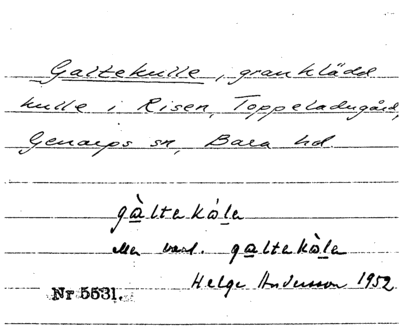 Galtekulle, granklädd
kulle i Risen, Toppeladugård,
Genarps sn, Bara hd
gàltekóle
eller vard. galtekòle
Helge Andersson 1952
Nr 5531.